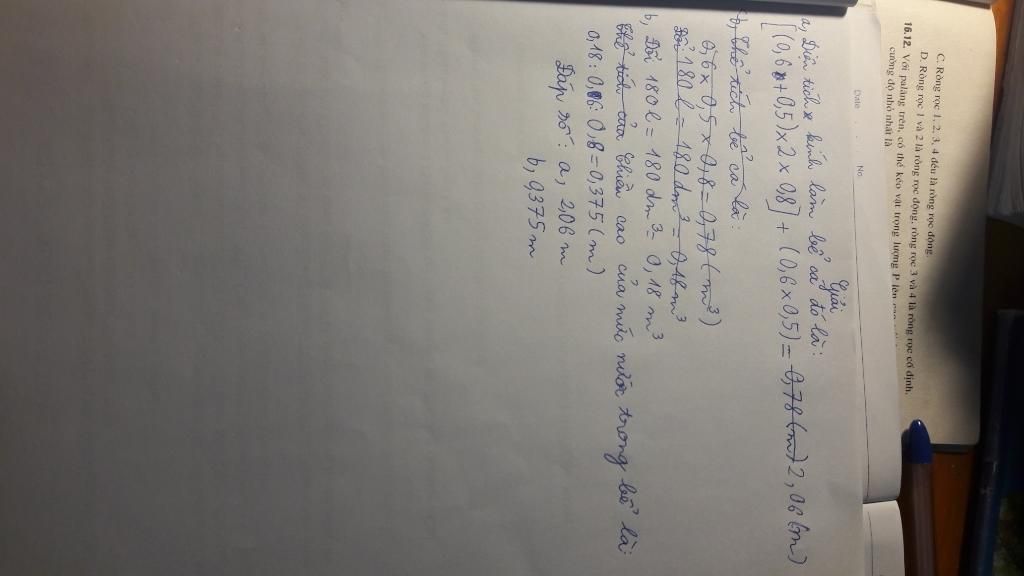 C. Ròng rọc 1, 2, 3, 4 đều là ròng rọc động.
D. Ròng rọc 1 và 2 là ròng rọc động, ròng rọc 3 và 4 là ròng rọc cố định.
16.12. Với palăng trên, có thể kéo vật trọng lượng P lên cao
cường độ nhỏ nhất là
Date No.
Giải
a, Diện tích kính làm bể cá đó là:
[(0,6 + 0,5) x 2 x 0,8] + (0,6 x 0,5) = 0,78 (m) 2,06 (m)
b, Thể tích bể cá là:
0,6 x 0,5 x 0,8 = 0,78 (m³)
Đổi 180 l = 180 dm³ = 0,18 m³
b, Đổi 180 l = 180 dm³ = 0,18 m³
Thể tích của chiều cao của mức nước trong bể là:
0,18 : 0,6 : 0,8 = 0,375 (m)
Đáp số: a, 2,06 m
b, 0,375 m